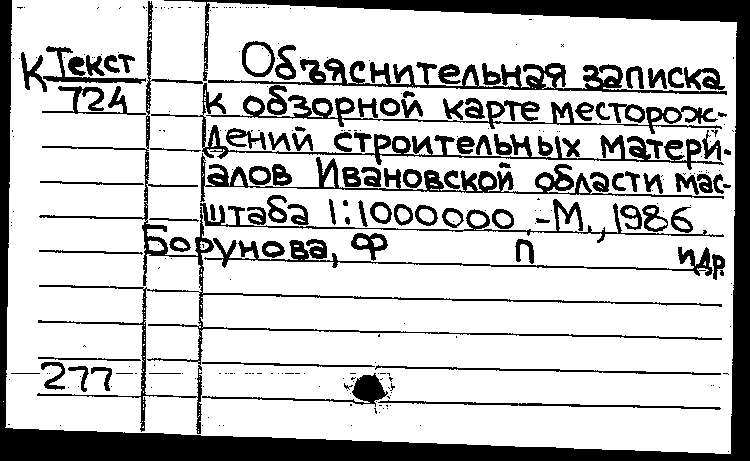 К Текст Объяснительная записка
724 к обзорной карте месторож-
дений строительных матери-
алов Ивановской области мас-
штаба 1:1000000.-М., 1986.
Борунова, Ф П и др.
277